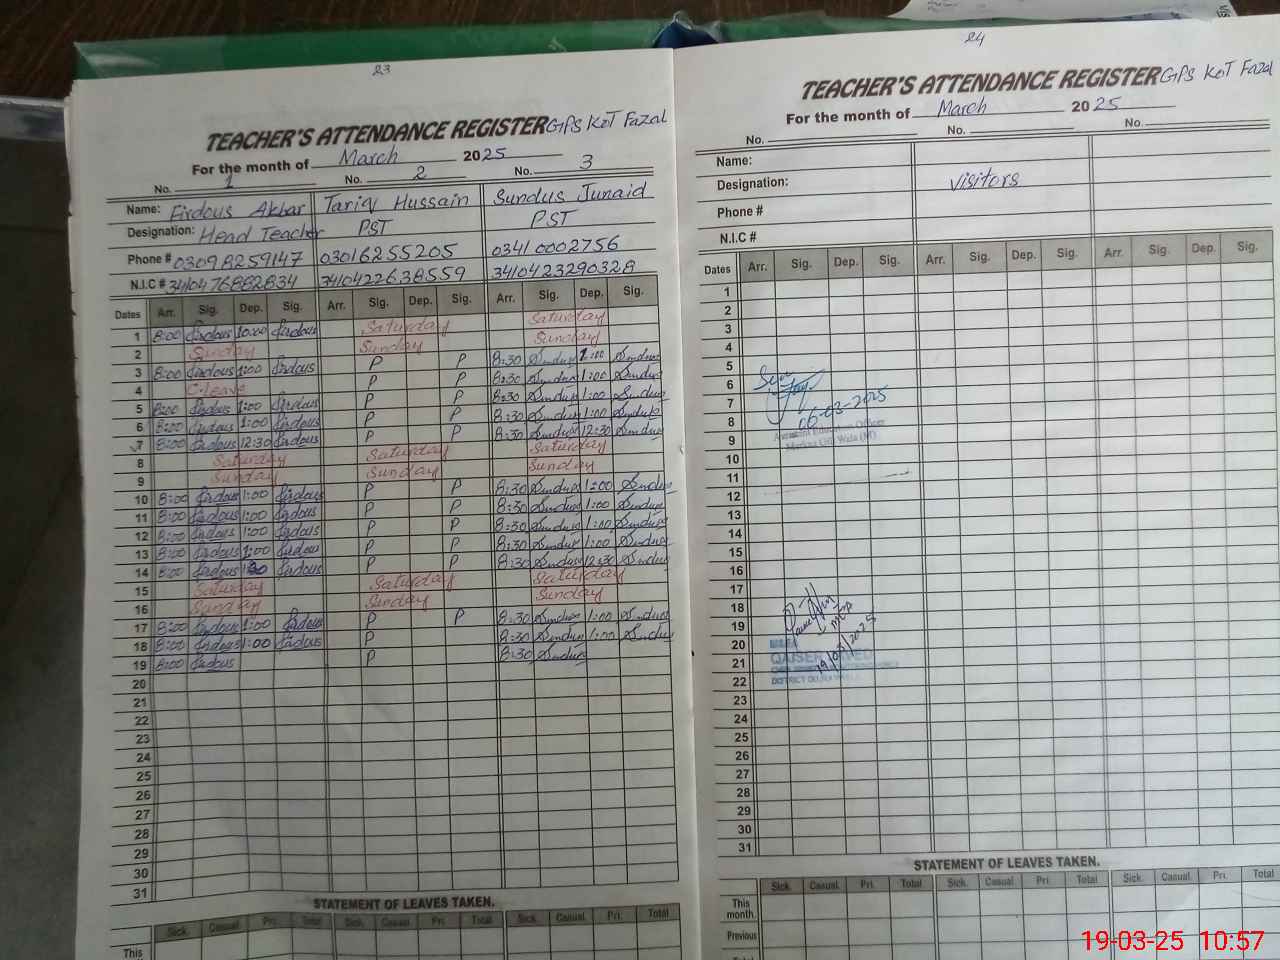 23
TEACHER'S ATTENDANCE REGISTER GPS KOT Fazal
For the month of March 2025
No. 1 No. 2 No. 3
Name: Firdous Akhar Tariq Hussain Sundus Junaid
Designation: Head Teacher PST PST
Phone # 03098259147 03016255205 03410002756
N.I.C # 3410476882834 3410422638559 3410423290328
Dates Arr. Sig. Dep. Sig. Arr. Sig. Dep. Sig. Arr. Sig. Dep. Sig.
1 8:00 firdous 10:00 firdous Saturday Saturday
2 Sunday Sunday Sunday
3 8:00 firdous 1:00 firdous P P 8:30 Sundus 1:00 Sundus
4 C-leave P P 8:30 Sundus 1:00 Sundus
5 8:00 firdous 1:00 firdous P P 8:30 Sundus 1:00 Sundus
6 8:00 firdous 1:00 firdous P P 8:30 Sundus 1:00 Sundus
7 8:00 firdous 12:30 firdous P P 8:30 Sundus 12:30 Sundus
8 Saturday Saturday Saturday
9 Sunday Sunday Sunday
10 8:00 firdous 1:00 firdous P P 8:30 Sundus 1:00 Sundus
11 8:00 firdous 1:00 firdous P P 8:30 Sundus 1:00 Sundus
12 8:00 firdous 1:00 firdous P P 8:30 Sundus 1:00 Sundus
13 8:00 firdous 1:00 firdous P P 8:30 Sundus 1:00 Sundus
14 8:00 firdous firdous P P 8:30 Sundus 12:30 Sundus
15 Saturday Saturday Saturday
16 Sunday Sunday Sunday
17 8:00 firdous 1:00 firdous P P 8:30 Sundus 1:00 Sundus
18 8:00 firdous 1:00 firdous P 8:30 Sundus 1:00 Sundus
19 8:00 firdous P 8:30 Sundus
20
21
22
23
24
25
26
27
28
29
30
31
STATEMENT OF LEAVES TAKEN.
Sick. Casual. Pri. Total Sick. Casual. Pri. Total Sick. Casual. Pri. Total
This
24
TEACHER'S ATTENDANCE REGISTER GPS KOT Fazal
For the month of March 2025
No. No. No.
Name:
Designation: Visitors
Phone #
N.I.C #
Dates Arr. Sig. Dep. Sig. Arr. Sig. Dep. Sig. Arr. Sig. Dep. Sig.
1
2
3
4
5
6
7
8 06-03-2025
9 Assistant Education Officer
10
11
12
13
14
15
16
17
18
19
20 19/03/2025
21 QAISER
22 DISTRICT
23
24
25
26
27
28
29
30
31
STATEMENT OF LEAVES TAKEN.
Sick. Casual. Pri. Total Sick. Casual. Pri. Total Sick. Casual. Pri. Total
This month.
Previous
19-03-25 10:57